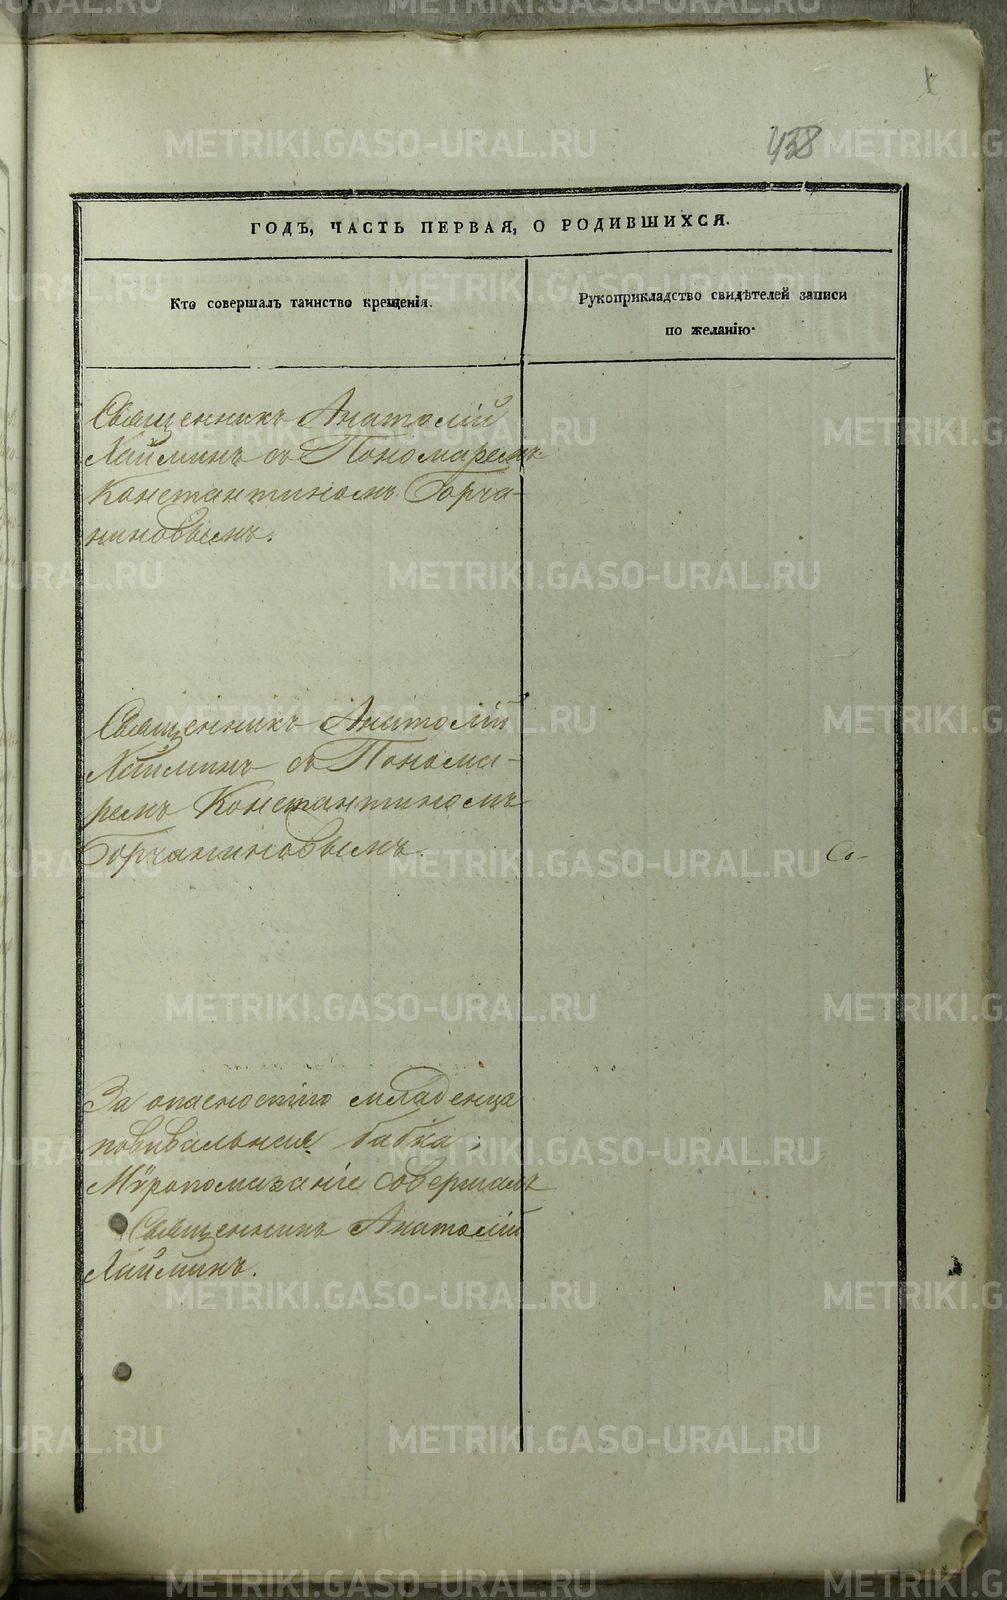 438
ГОДЪ, ЧАСТЬ ПЕРВАЯ, О РОДИВШИХСЯ.
Кто совершалъ таинство крещенія.
Рукоприкладство свидѣтелей записи
по желанію.
Священникъ Анатолій
Хайминъ съ Пономаремъ
Константиномъ Горча-
ниновымъ.
Священникъ Анатолій
Хайминъ съ Понома-
ремъ Константиномъ
Горчаниновымъ.
Со-
За опасностію младенца
повивальная бабка,
Мѵропомазаніе совершалъ
Священникъ Анатолій
Хайминъ.
METRIKI.GASO-URAL.RU